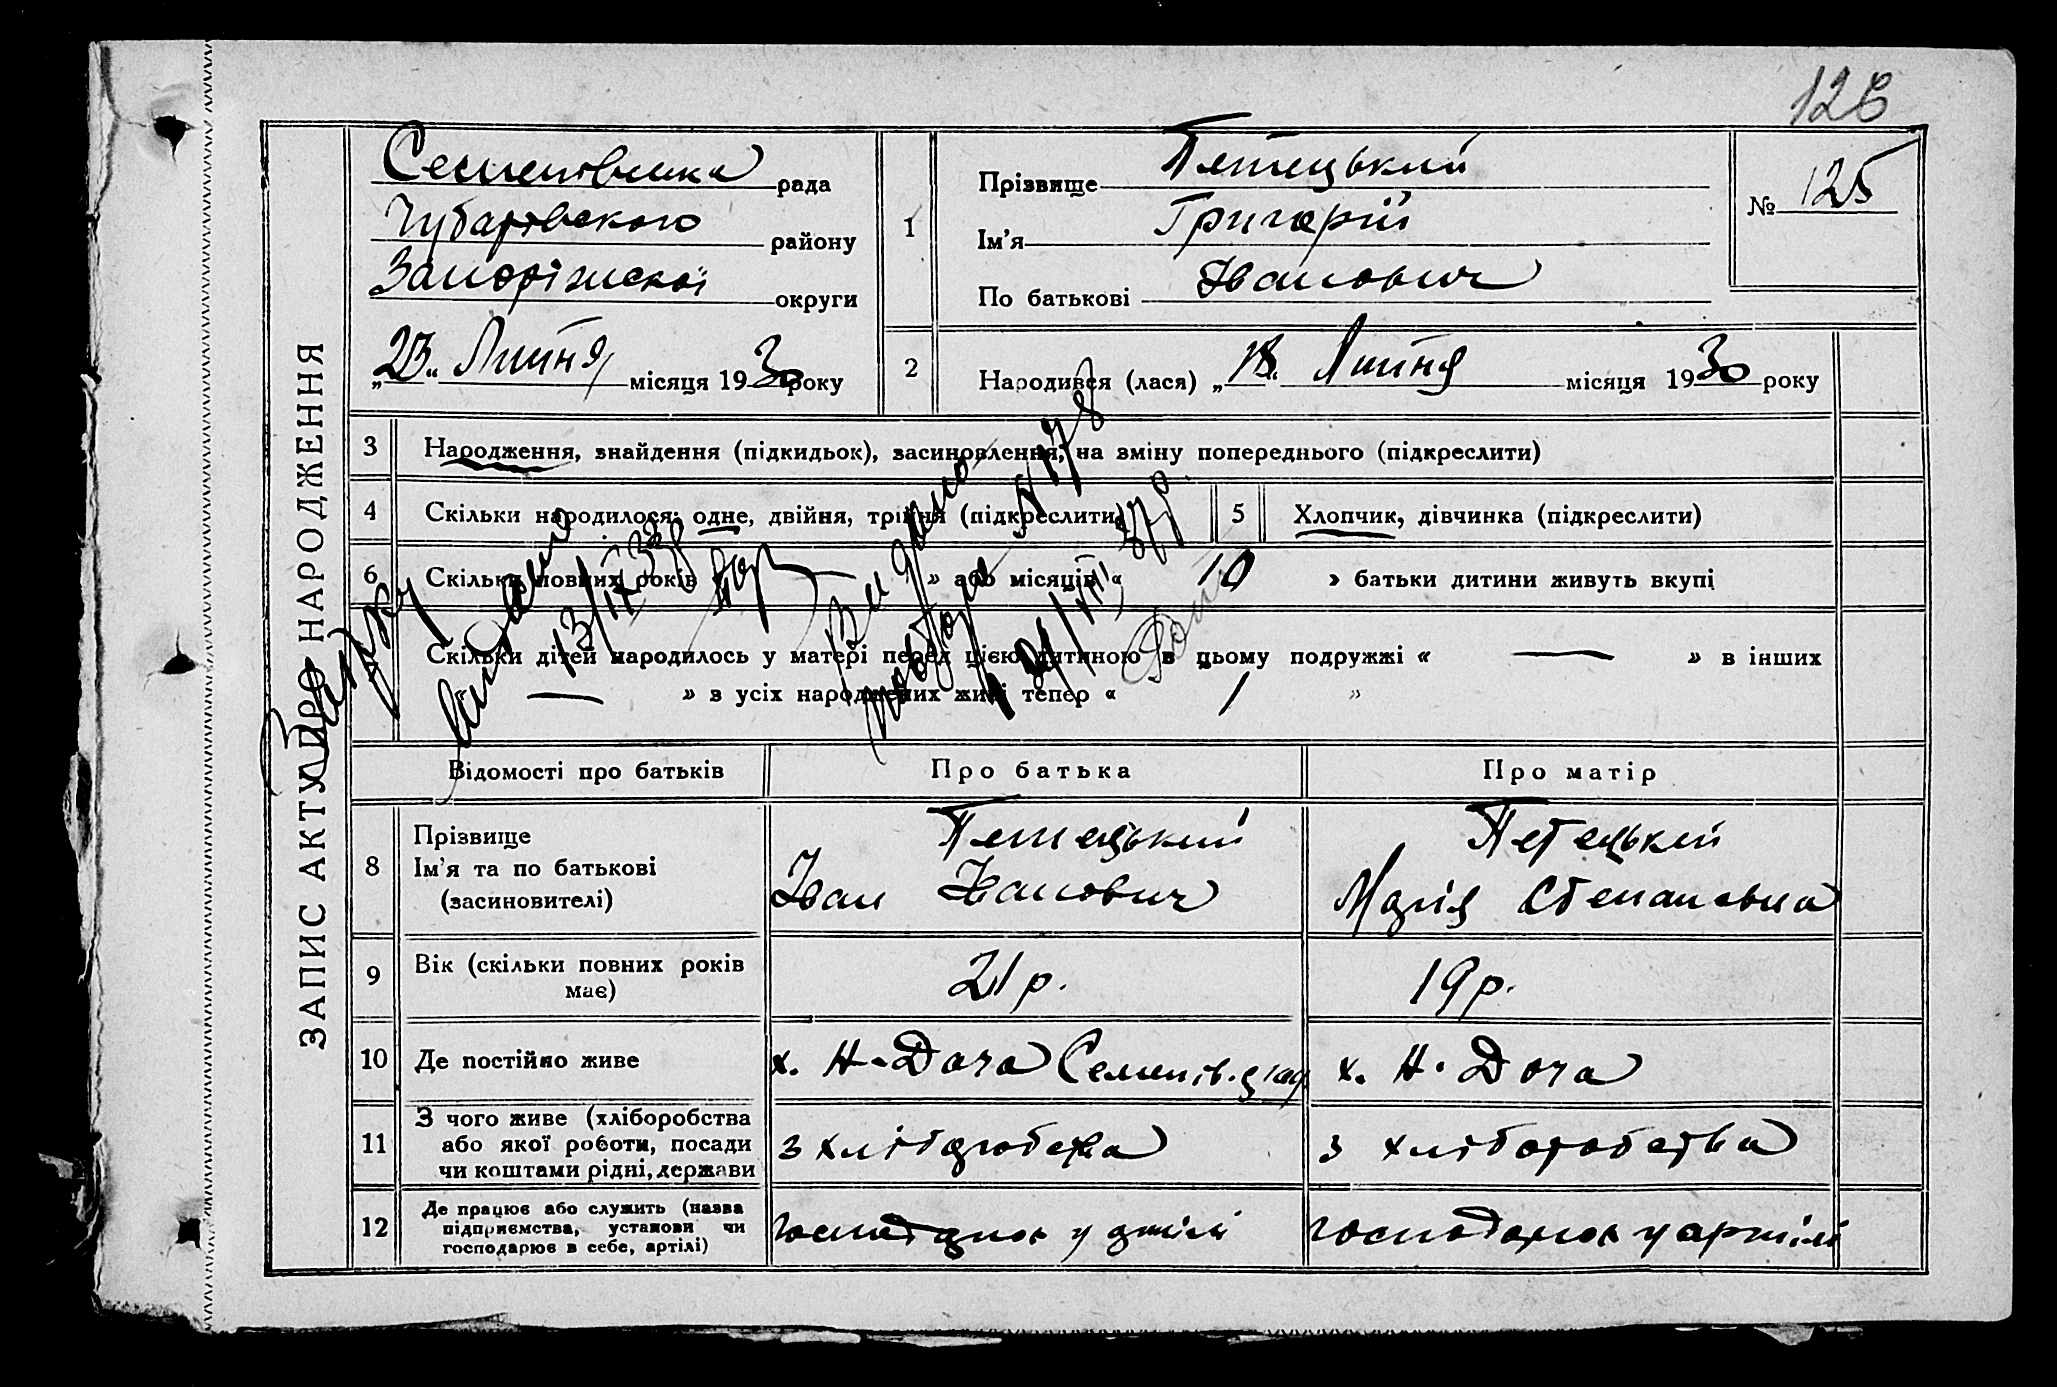 126
Семенівська рада
Чубарівського району
Запоріжської округи
„23“ Липня місяця 1930 року
1
Прізвище Петецький
Ім’я Григорій
По батькові Іванович
№ 125
2
Народився (лася) „18“ Липня місяця 1930 року
ЗАПИС АКТУ ПРО НАРОДЖЕННЯ
3 Народження, знайдення (підкидьок), засиновлення, на зміну попереднього (підкреслити)
4 Скільки народилося: одне, двійня, трійня (підкреслити)
5 Хлопчик, дівчинка (підкреслити)
6 Скільки повних років » або місяців « 10 » батьки дитини живуть вкупі
Скільки дітей народилось у матері перед цією дитиною в цьому подружжі « — » в інших
« — » в усіх народжених живі тепер « 1 »
Видано
13/IX 33р
Видано
повторно №178
21/VIII 37р.
Відомості про батьків
Про батька
Про матір
8 Прізвище
Ім’я та по батькові
(засиновителі)
Петецький
Іван Іванович
Петецький
Марія Степановна
9 Вік (скільки повних років
має)
21 р.
19 р.
10 Де постійно живе
х. Н-Дача Семенів.
х. Н-Дача
11 З чого живе (хліборобства
або якої роботи, посади
чи коштами рідні, держави
з хліборобства
з хліборобства
12 Де працює або служить (назва
підприємства, установи чи
господарює в себе, артілі)
господарює у артілі
господарює у артілі